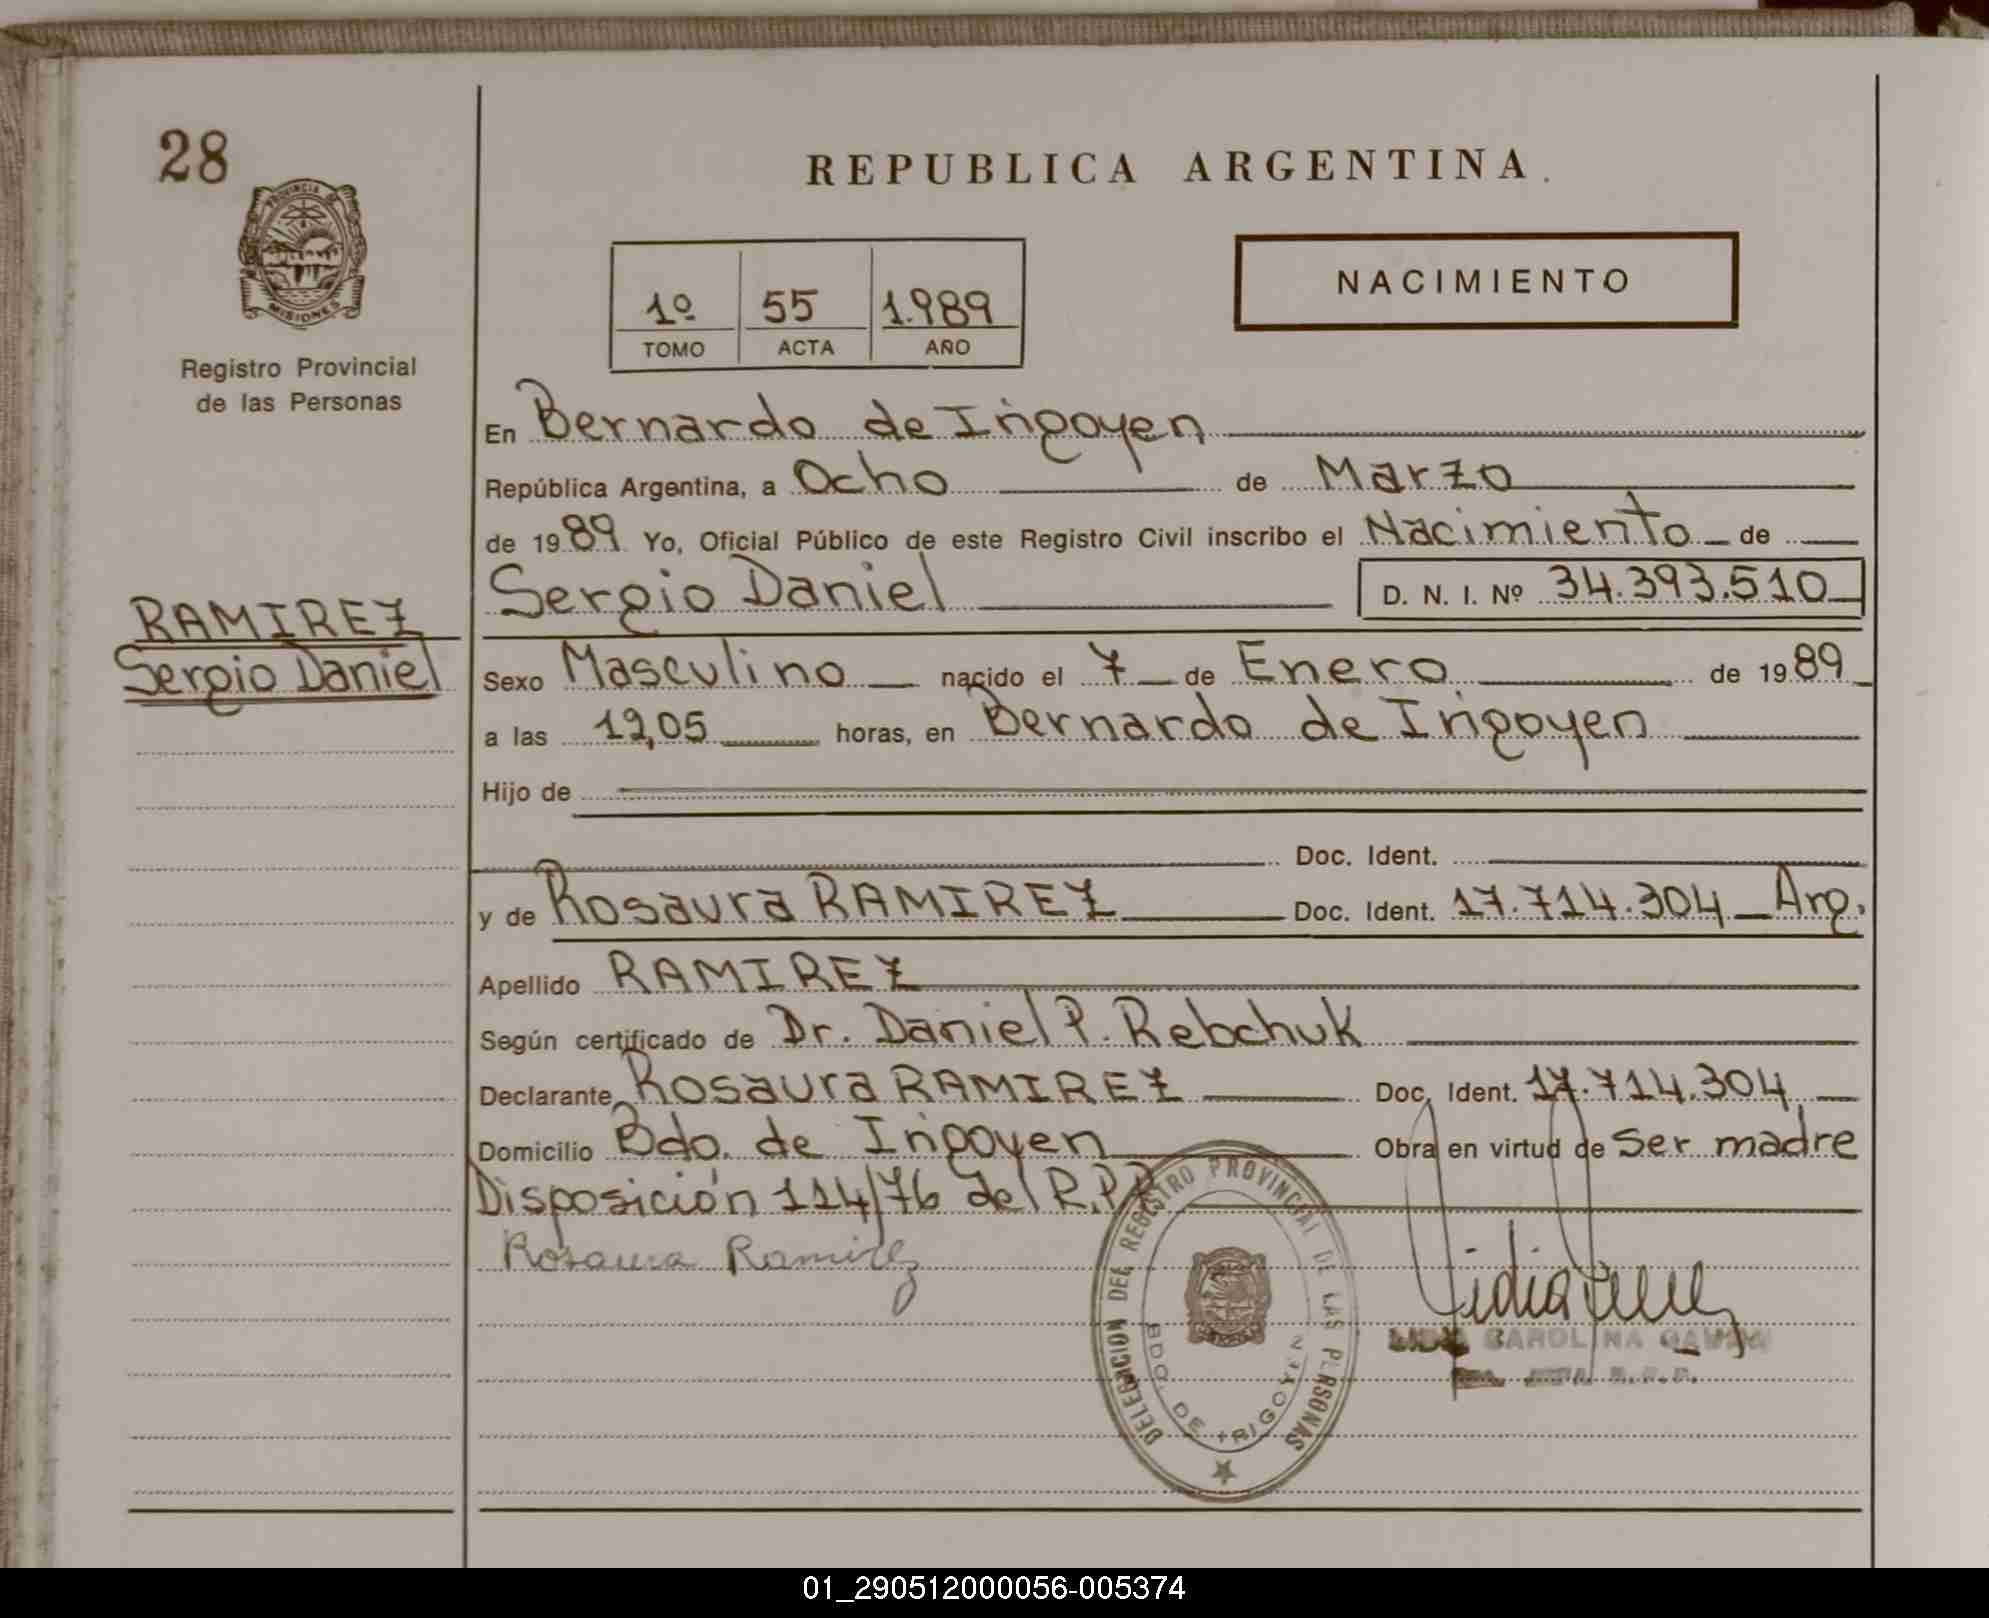 28
REPUBLICA ARGENTINA.
PROVINCIA DE
MISIONES
Registro Provincial
de las Personas
NACIMIENTO
1º 55 1.989
TOMO ACTA AÑO
En Bernardo de Irigoyen
República Argentina, a Ocho de Marzo
de 1989 Yo, Oficial Público de este Registro Civil inscribo el Nacimiento de
Sergio Daniel D. N. I. Nº 34.393.510
RAMIREZ
Sergio Daniel
Sexo Masculino nacido el 7 de Enero de 1989
a las 12,05 horas, en Bernardo de Irigoyen
Hijo de
Doc. Ident.
y de Rosaura RAMIREZ Doc. Ident. 17.714.304 Arg.
Apellido RAMIREZ
Según certificado de Dr. Daniel P. Rebchuk
Declarante Rosaura RAMIREZ Doc. Ident. 17.714.304
Domicilio Bdo. de Irigoyen Obra en virtud de Ser madre
Disposición 114/76 del R.P.P.
Rosaura Ramirez
DELEGACION DEL REGISTRO PROVINCIAL DE LAS PERSONAS
BDO. DE IRIGOYEN
CAROLINA
01_290512000056-005374